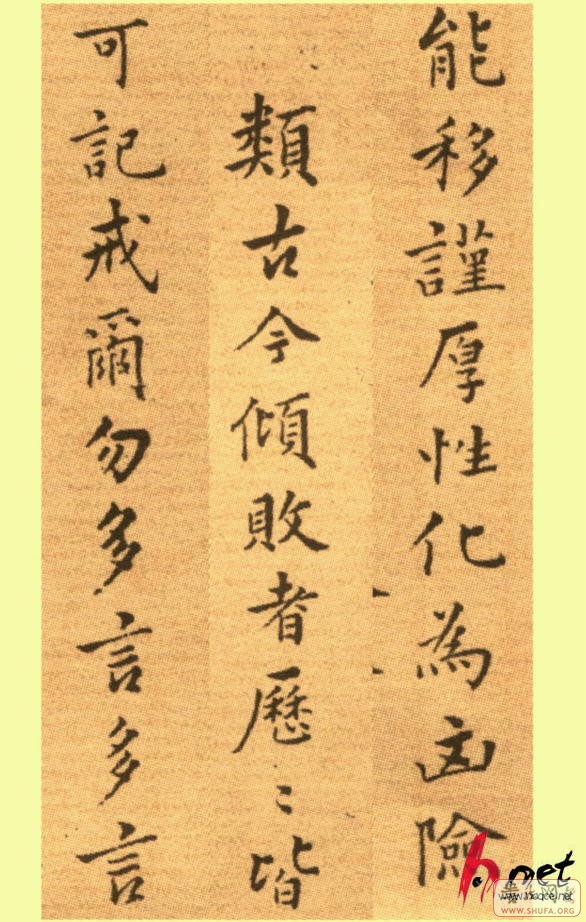 能移謹厚性化為凶險
類古今傾敗者歷〻皆
可記戒爾勿多言多言
h.net
www.haoce.net
WWW.SHUFA.ORG